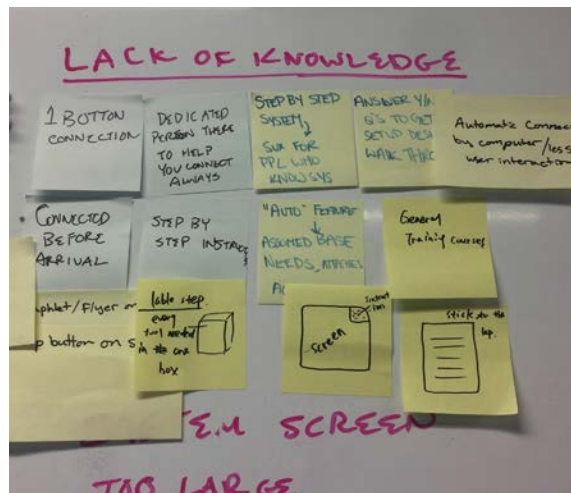 LACK OF KNOWLEDGE
1 BUTTON
CONNECTION
DEDICATED
PERSON THERE
TO HELP
YOU CONNECT
ALWAYS
STEP BY STEP
SYSTEM
FOR
PPL WHO
KNOW SYS
ANSWER Y/N
Q'S TO GET
SETUP
WALK
Automatic
by computer/less
user interaction
CONNECTED
BEFORE
ARRIVAL
STEP BY
STEP
"AUTO" FEATURE
ASSUMED BASE
NEEDS
General
Training courses
/Flyer on
button on
lable step.
every
tool needed
in the one
box
screen
stick to the
TOO LARGE
SCREEN